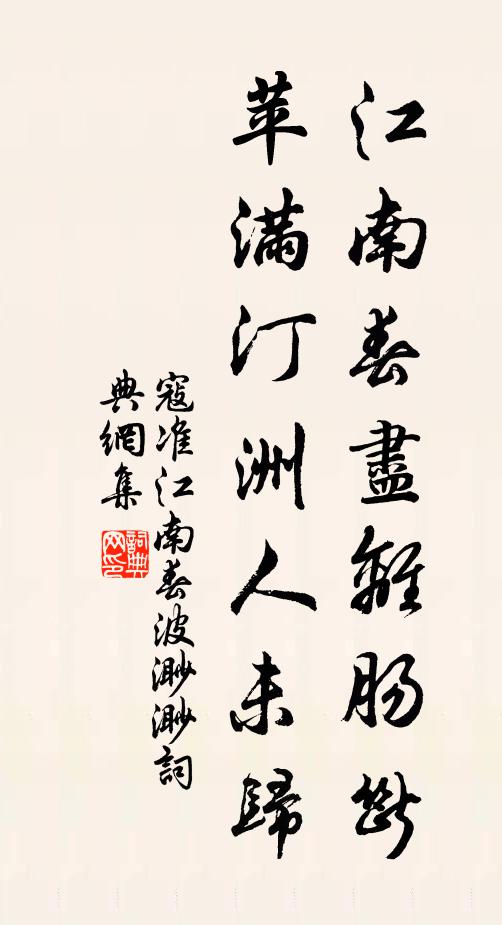 江南春盡離腸斷
苹滿汀洲人未歸
寇准江南春波渺渺詞
典網集
詞典网印